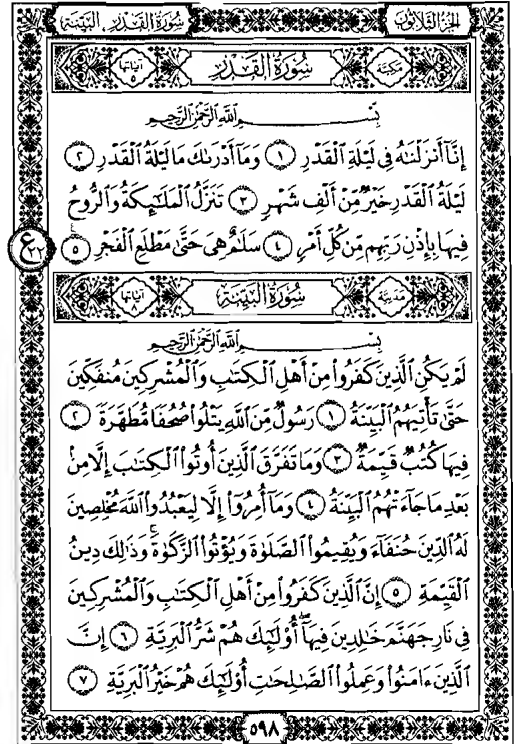 الجزء الثلاثون سورة القدر . البينة
مكية سورة القدر آياتها ٥
بِسْمِ اللَّهِ الرَّحْمَٰنِ الرَّحِيمِ
إِنَّآ أَنزَلْنَٰهُ فِى لَيْلَةِ ٱلْقَدْرِ ١ وَمَآ أَدْرَىٰكَ مَا لَيْلَةُ ٱلْقَدْرِ ٢
لَيْلَةُ ٱلْقَدْرِ خَيْرٌ مِّنْ أَلْفِ شَهْرٍ ٣ تَنَزَّلُ ٱلْمَلَٰٓئِكَةُ وَٱلرُّوحُ
فِيهَا بِإِذْنِ رَبِّهِم مِّن كُلِّ أَمْرٍ ٤ سَلَٰمٌ هِىَ حَتَّىٰ مَطْلَعِ ٱلْفَجْرِ ٥
ع
مدنية سورة البينة آياتها ٨
بِسْمِ اللَّهِ الرَّحْمَٰنِ الرَّحِيمِ
لَمْ يَكُنِ ٱلَّذِينَ كَفَرُوا۟ مِنْ أَهْلِ ٱلْكِتَٰبِ وَٱلْمُشْرِكِينَ مُنفَكِّينَ
حَتَّىٰ تَأْتِيَهُمُ ٱلْبَيِّنَةُ ١ رَسُولٌ مِّنَ ٱللَّهِ يَتْلُوا۟ صُحُفًا مُّطَهَّرَةً ٢
فِيهَا كُتُبٌ قَيِّمَةٌ ٣ وَمَا تَفَرَّقَ ٱلَّذِينَ أُوتُوا۟ ٱلْكِتَٰبَ إِلَّا مِنۢ
بَعْدِ مَا جَآءَتْهُمُ ٱلْبَيِّنَةُ ٤ وَمَآ أُمِرُوٓا۟ إِلَّا لِيَعْبُدُوا۟ ٱللَّهَ مُخْلِصِينَ
لَهُ ٱلدِّينَ حُنَفَآءَ وَيُقِيمُوا۟ ٱلصَّلَوٰةَ وَيُؤْتُوا۟ ٱلزَّكَوٰةَ وَذَٰلِكَ دِينُ
ٱلْقَيِّمَةِ ٥ إِنَّ ٱلَّذِينَ كَفَرُوا۟ مِنْ أَهْلِ ٱلْكِتَٰبِ وَٱلْمُشْرِكِينَ
فِى نَارِ جَهَنَّمَ خَٰلِدِينَ فِيهَآ أُو۟لَٰٓئِكَ هُمْ شَرُّ ٱلْبَرِيَّةِ ٦ إِنَّ
ٱلَّذِينَ ءَامَنُوا۟ وَعَمِلُوا۟ ٱلصَّٰلِحَٰتِ أُو۟لَٰٓئِكَ هُمْ خَيْرُ ٱلْبَرِيَّةِ ٧
٥٩٨